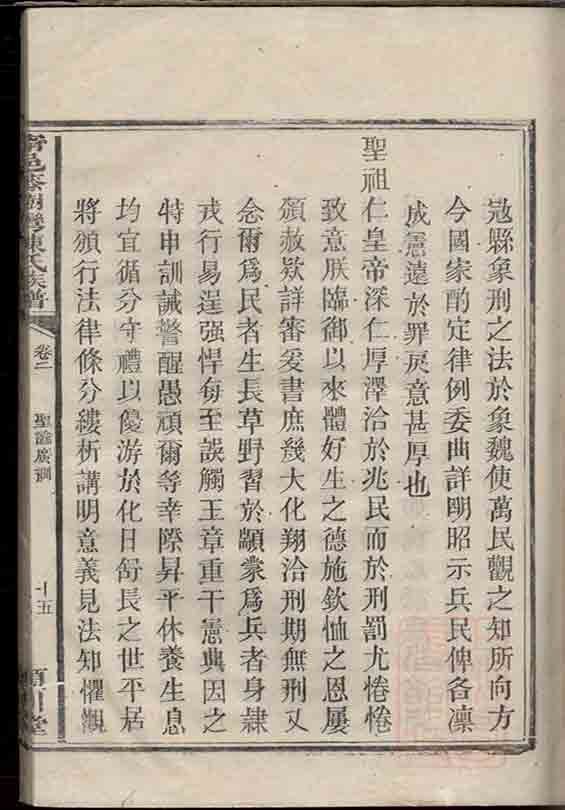 懸象刑之法於象魏使萬民觀之知所向方
今國家酌定律例委曲詳明昭示兵民俾各凜
成憲遠於罪戾意甚厚也
聖祖仁皇帝深仁厚澤洽於兆民而於刑罰尤惓惓
致意朕臨御以來體好生之德施欽恤之恩屢
頒赦款詳審爰書庶幾大化翔洽刑期無刑又
念爾爲民者生長草野習於顓蒙爲兵者身隸
戎行易逞强悍每至誤觸王章重干憲典因之
特申訓誡警醒愚頑爾等幸際昇平休養生息
均宜循分守禮以優游於化日舒長之世平居
將頒行法律條分縷析講明意義見法知懼觀
陳氏族譜
卷二
聖諭廣訓
十五